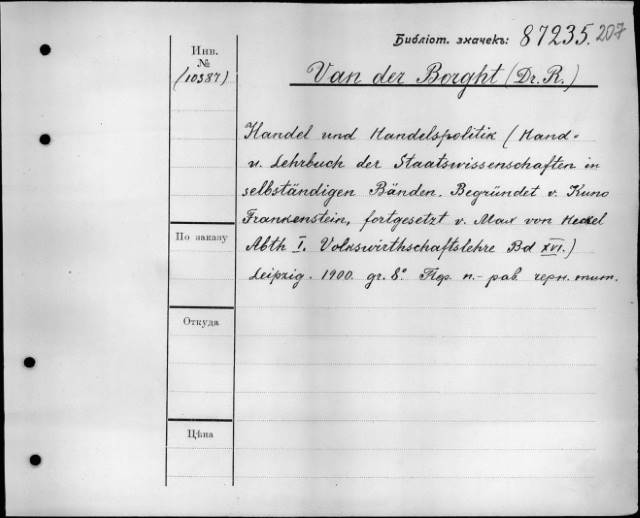 Библіот. значекъ: 87235. 207
Инв.
№
(10387)
Van der Borght (Dr. R.)
Handel und Handelspolitik (Hand-
u. Lehrbuch der Staatswissenschaften in
selbständigen Bänden. Begründet v. Kuno
Frankenstein, fortgesetzt v. Max von Heckel
По заказу
Abth I. Volkswirthschaftslehre Bd XVI.)
Leipzig. 1900. gr. 8°. Пер. п.-
Откуда
Цѣна